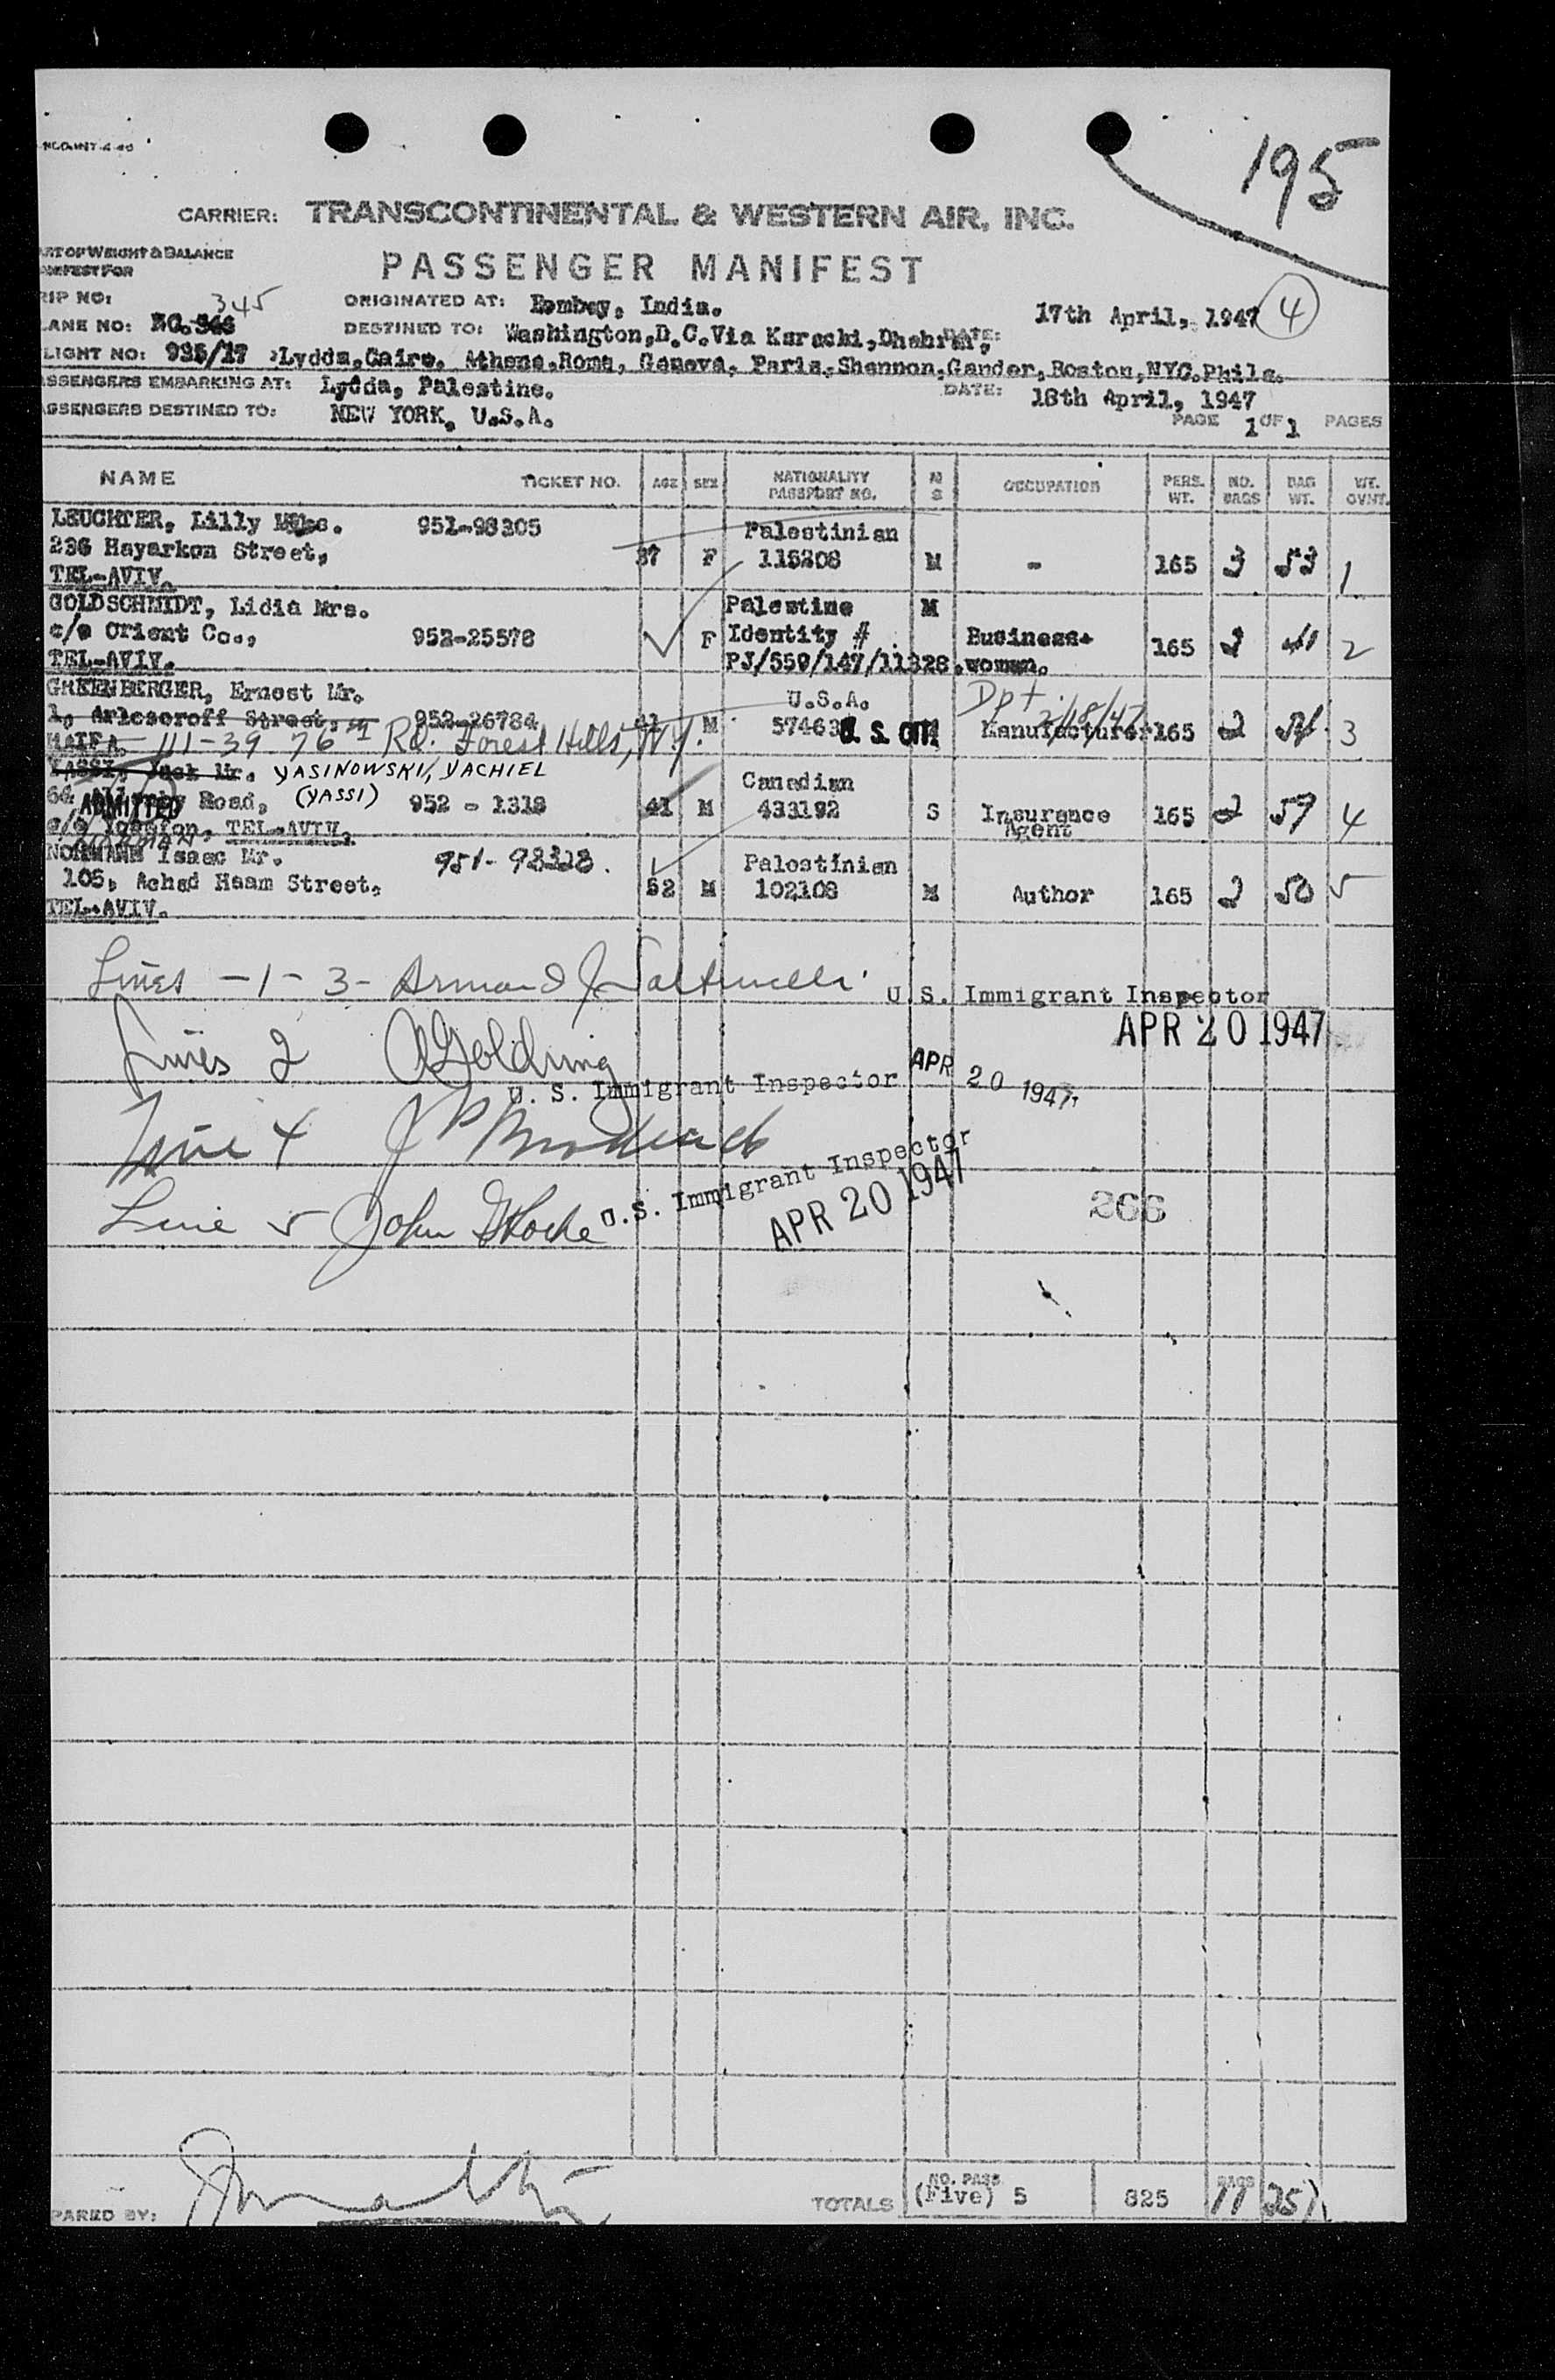 195
CARRIER: TRANSCONTINENTAL & WESTERN AIR, INC.
PASSENGER MANIFEST
RT OF WEIGHT & BALANCE
FEST FOR
RIP NO: 345
ORIGINATED AT: Bombay, India.
17th April, 1947 4
LANE NO:
DESTINED TO: Washington,D.C.Via Karachi,Dhahran,
DATE:
LIGHT NO: 935/17 Lydda,Cairo, Athens,Rome, Geneva, Paris,Shannon,Gander,Boston,NYC.Phila.
SSENGERS EMBARKING AT: Lydda, Palestine.
DATE: 18th April, 1947
SSENGERS DESTINED TO: NEW YORK, U.S.A.
PAGE 1 OF 1 PAGES
NAME TICKET NO. AGE SEX NATIONALITY PASSPORT NO. M S OCCUPATION PERS. WT. NO. BAGS BAG WT. WT. OVNT.
LEUCHTER, Lilly 951-98305 Palestinian
236 Hayarkon Street, 37 F 115208 M - 165 3 53 1
TEL-AVIV.
GOLDSCHMIDT, Lidia Mrs. Palestine M
c/o Orient Co., 952-25578 F Identity # Business- 165 2 41 2
TEL-AVIV. PJ/559/147/11328. woman.
GREENBERGER, Ernest Mr. U.S.A. Dpt.
1, Arlosoroff Street, 952-26784 41 M 57463 U.S. CIT. Manufacturer 165 2 3
HAIFA. 111-39 76th Rd. Forest Hills, N.Y.
YASSI, Jack Mr. YASINOWSKI, YACHIEL Canadian
64 Road, (YASSI) 952 - 1318 41 M 433192 S Insurance Agent 165 2 57 4
ADMITTED
TEL-AVIV.
NORMANN Isaac Mr. 951-98328. Palestinian
105, Achad Haam Street, 52 M 102108 M Author 165 2 50 5
TEL-AVIV.
Lines - 1 - 3 - Armand J
U.S. Immigrant Inspector
APR 20 1947
Lines 2 Golding
U. S. Immigrant Inspector APR 20 1947
Line 4 J P
U.S. Immigrant Inspector
APR 20 1947
Line 5 John
266
PARED BY:
TOTALS NO. PASS. (Five) 5 825 BAGS 11 251